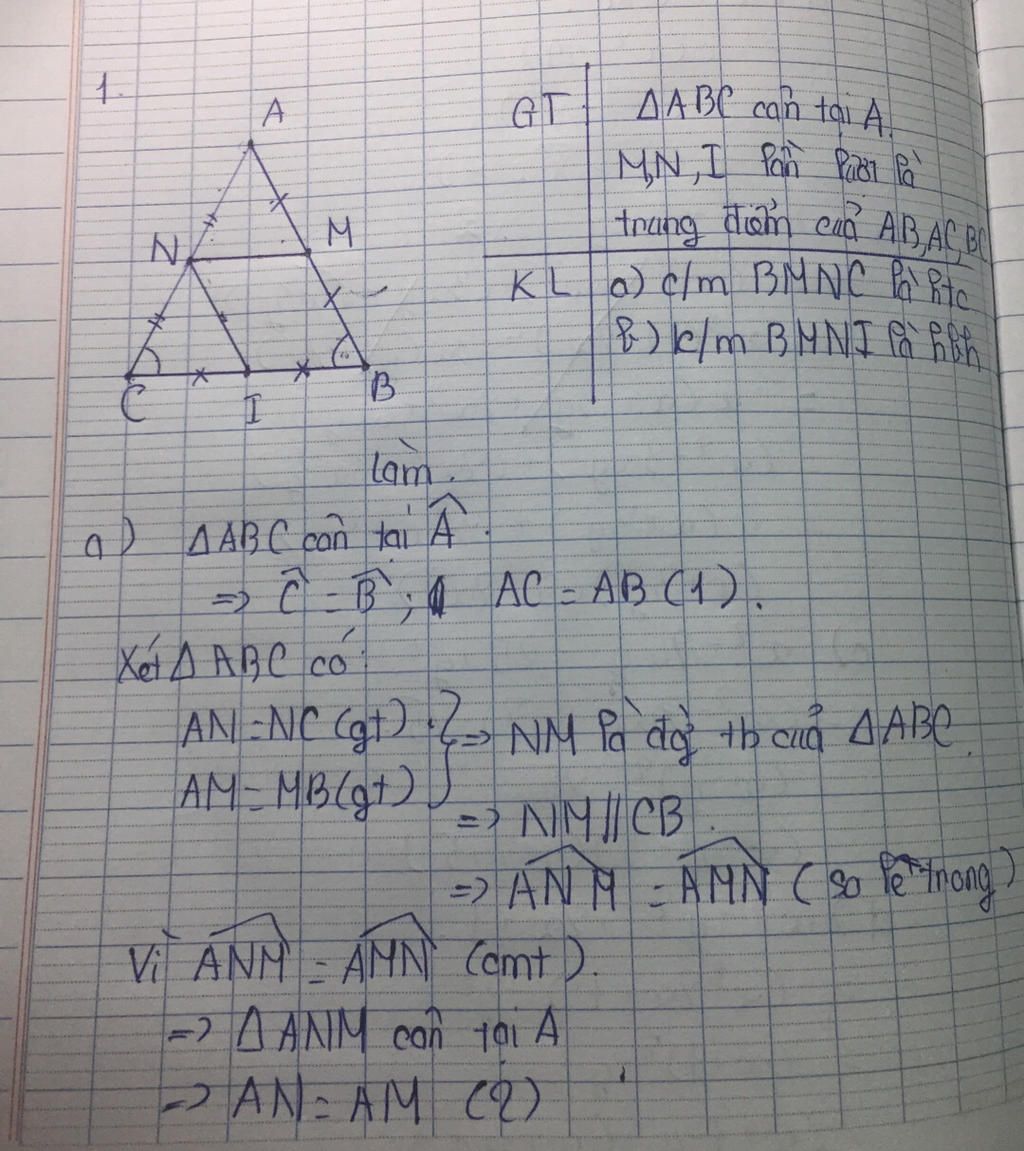 1.
A
N
M
C
I
B
GT
ΔABC cân tại A.
M,N,I lần lượt là
trung điểm của AB,AC,BC
KL
a) c/m BMNC là htc
b) c/m BMNI là hbh
Làm.
a) ΔABC cân tại Â.
=> Ĉ = B̂; AC = AB (1).
Xét ΔABC có:
AN = NC (gt) } => NM là đg tb của ΔABC.
AM = MB (gt)
=> NM // CB.
=> ANM̂ = AMN̂ (so le trong)
Vì ANM̂ = AMN̂ (cmt).
=> ΔANM cân tại A
=> AN = AM (2)